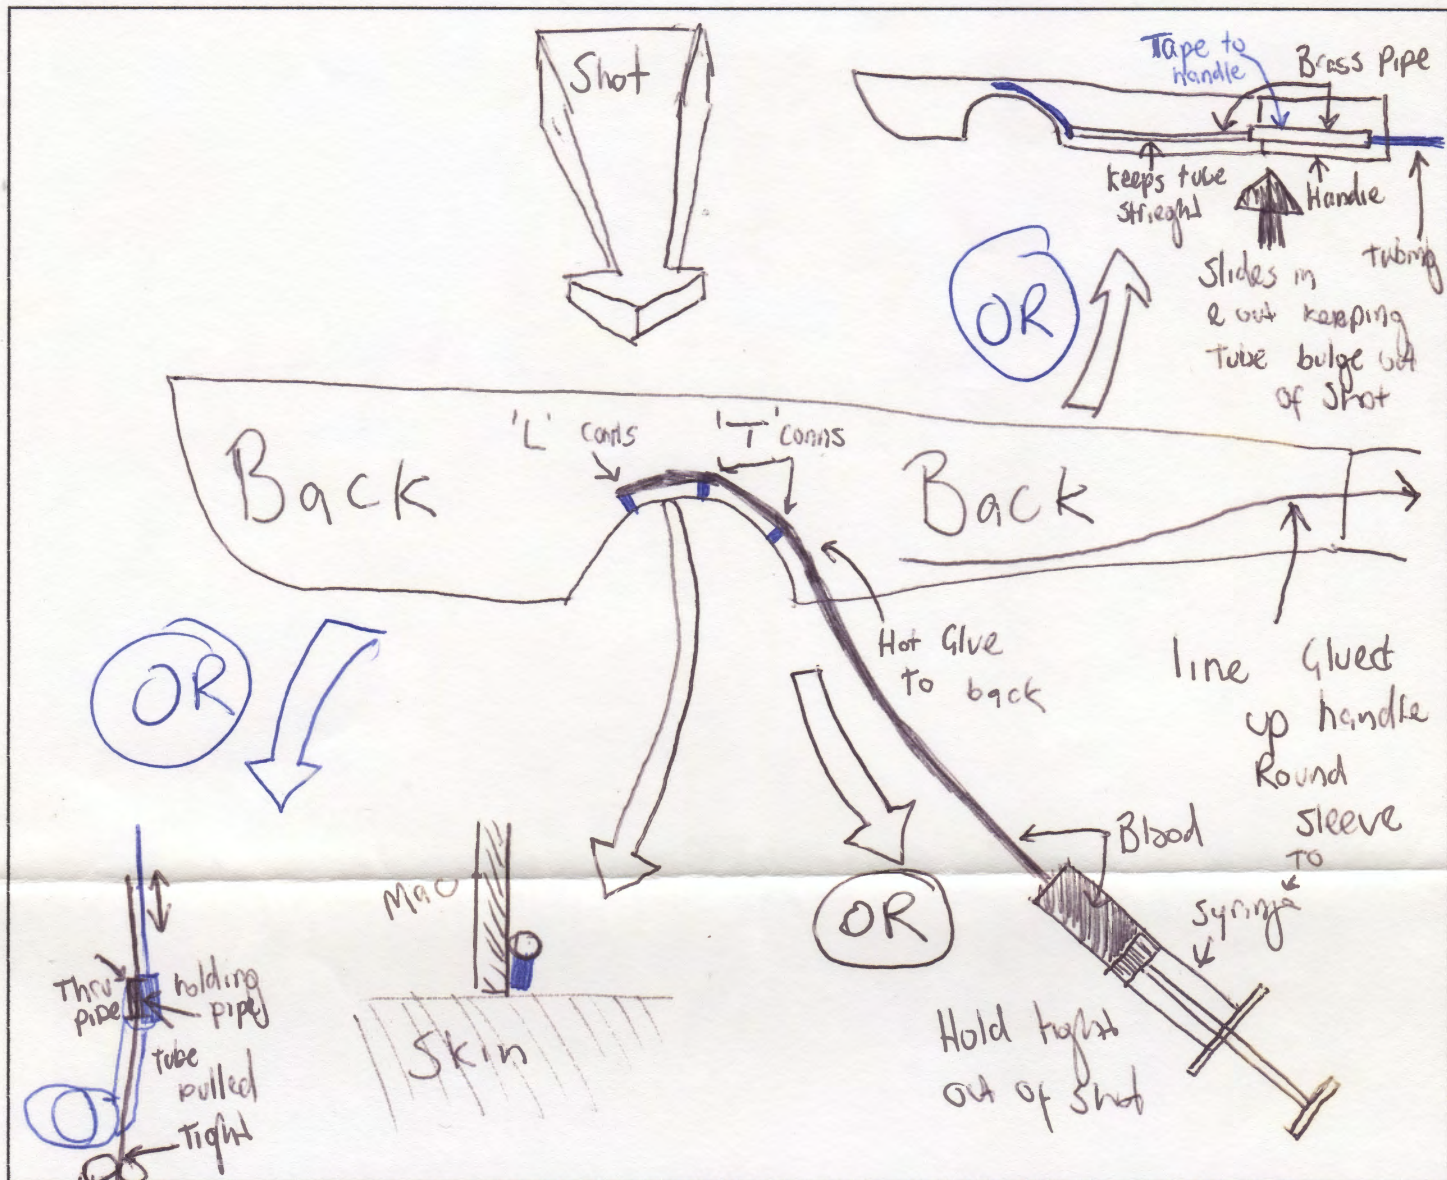 Shot
Tape to
handle
Brass Pipe
keeps tube
strieght
Handle
tubing
Slides in
& out keeping
tube bulge out
of Shot
OR
'L' conns
'T' conns
Back
Back
Hot Glue
to back
line Glued
up handle
Round
Sleeve
to
Syringe
OR
Blood
OR
Hold tight
out of shot
Mac
Skin
Thru
pipe
holding
pipes
tube
pulled
tight